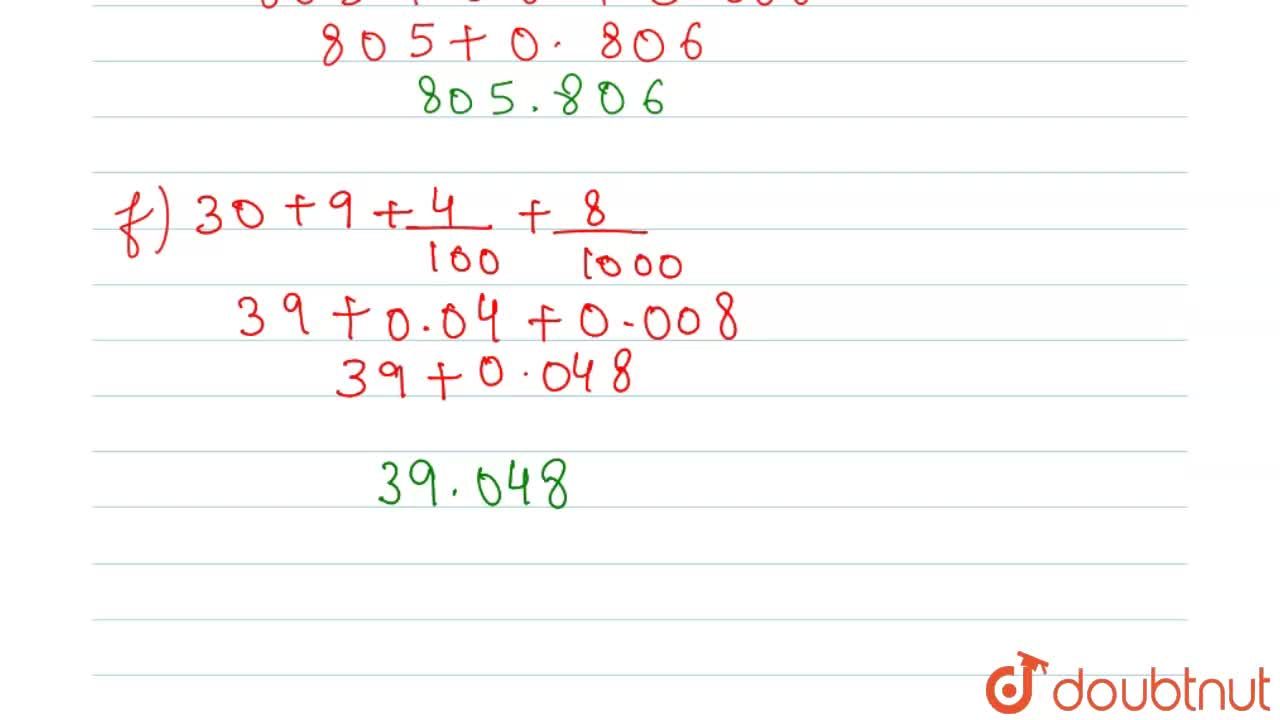 805+0.806
805.806
f) 30+9+4/100+8/1000
39+0.04+0.008
39+0.048
39.048
doubtnut